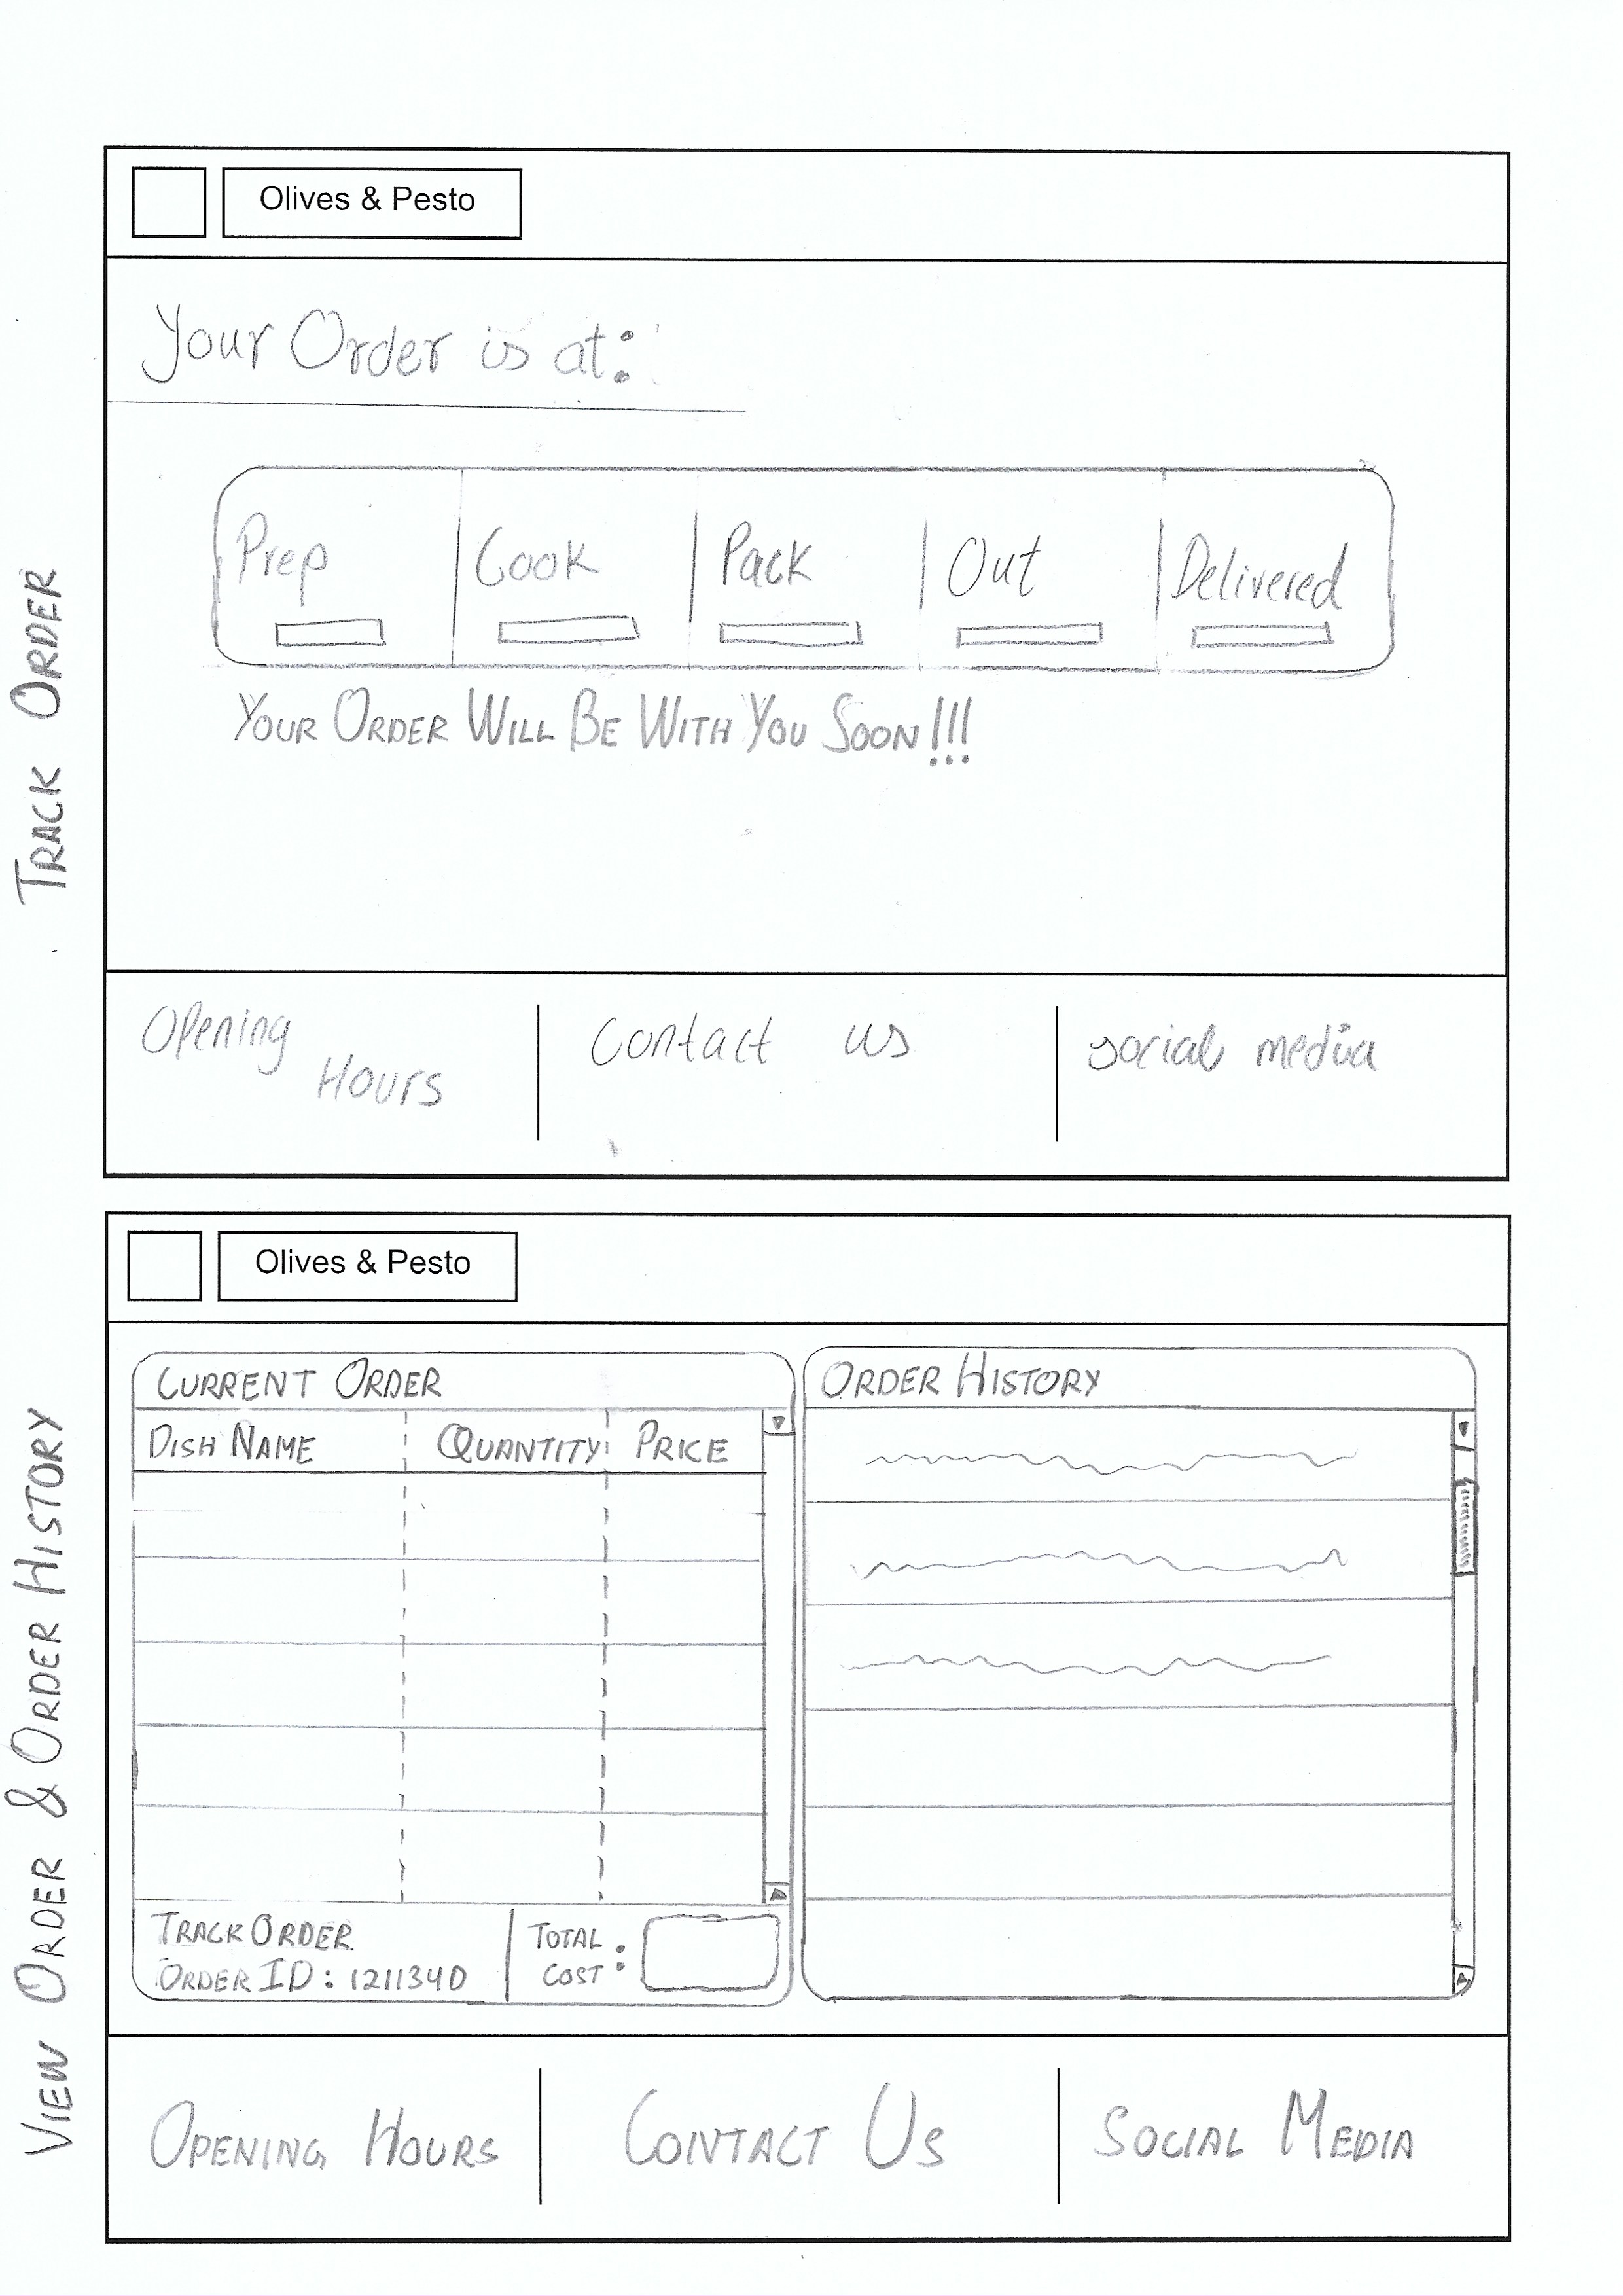 TRACK ORDER
Olives & Pesto
Your Order is at:
Prep
Cook
Pack
Out
Delivered
YOUR ORDER WILL BE WITH YOU SOON!!!
Opening
Hours
Contact us
social media
VIEW ORDER & ORDER HISTORY
Olives & Pesto
CURRENT ORDER
DISH NAME
QUANTITY
PRICE
TRACK ORDER
ORDER ID: 1211340
TOTAL
COST:
ORDER HISTORY
OPENING HOURS
CONTACT US
SOCIAL MEDIA